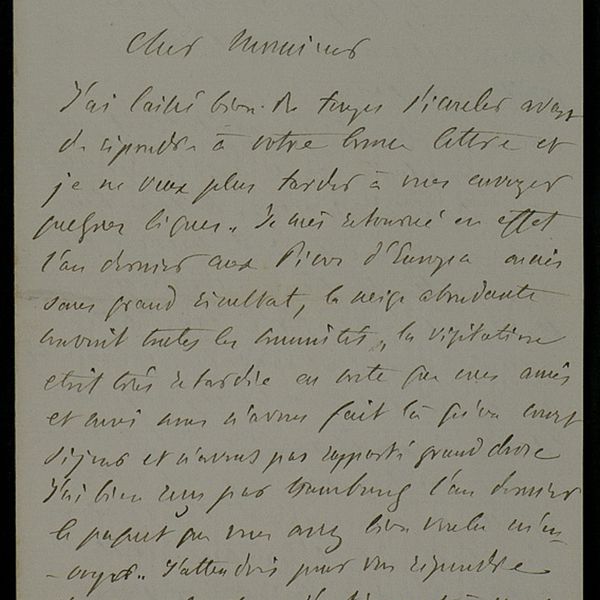 Cher Monsieur
J'ai laissé bien du temps s'écouler avant
de répondre à votre bonne lettre et
je ne veux plus tarder à vous envoyer
quelques lignes. Je suis retourné en effet
l'an dernier aux Picos d'Europa mais
sans grand résultat, la neige abondante
couvrait toutes les sommités, la végétation
était très retardée en sorte que mes amis
et moi nous n'avons fait là qu'un court
séjour et n'avons pas rapporté grand chose
J'ai bien reçu par Hambourg l'an dernier
le paquet que vous avez bien voulu m'en-
-voyer. J'attendais pour vous répondre